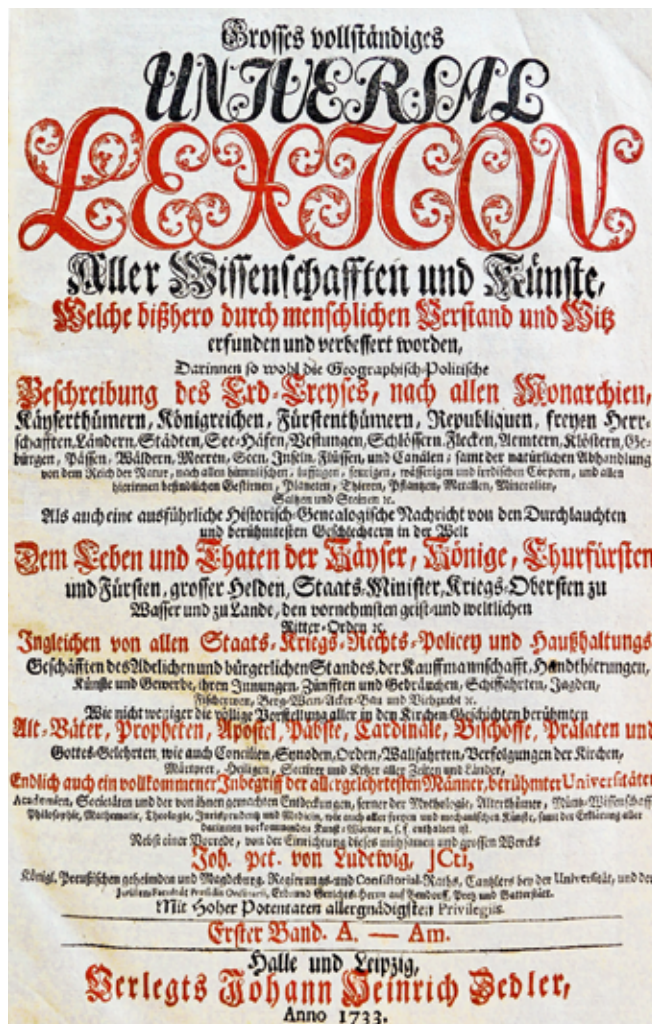 Grosses vollständiges
UNIVERSAL
LEXICON
Aller Wissenschafften und Künste,
Welche bißhero durch menschlichen Verstand und Witz
erfunden und verbessert worden,
Darinnen so wohl die Geographisch-Politische
Beschreibung des Erd-Creyses, nach allen Monarchien,
Käyserthümern, Königreichen, Fürstenthümern, Republiquen, freyen Herr-
schafften, Ländern, Städten, See-Häfen, Vestungen, Schlössern, Flecken, Aemtern, Klöstern, Ge-
bürgen, Pässen, Wäldern, Meeren, Seen, Inseln, Flüssen, und Canälen; samt der natürlichen Abhandlung
von dem Reich der Natur, nach allen himmlischen, lufftigen, feurigen, wässerigen und irrdischen Cörpern, und allen
hierinnen befindlichen Gestirnen, Planeten, Thieren, Pflantzen, Metallen, Mineralien,
Saltzen und Steinen ꝛc.
Als auch eine ausführliche Historisch-Genealogische Nachricht von den Durchlauchten
und berühmtesten Geschlechtern in der Welt
Dem Leben und Thaten der Käyser, Könige, Churfürsten
und Fürsten, grosser Helden, Staats-Minister, Kriegs-Obersten zu
Wasser und zu Lande, den vornehmsten geist- und weltlichen
Ritter-Orden ꝛc.
Ingleichen von allen Staats-Kriegs-Rechts-Policey und Haußhaltungs
Geschäfften des Adelichen und bürgerlichen Standes, der Kauffmannschafft, Handthierungen,
Künste und Gewerbe, ihren Innungen, Zünfften und Gebräuchen, Schiffahrten, Jagden,
Fischereyen, Berg-Wein-Acker-Bau und Viehzucht ꝛc.
Wie nicht weniger die völlige Vorstellung aller in den Kirchen-Geschichten berühmten
Alt-Väter, Propheten, Apostel, Päbste, Cardinäle, Bischöffe, Prälaten und
Gottes-Gelehrten, wie auch Concilien, Synoden, Orden, Wallfahrten, Verfolgungen der Kirchen,
Märtyrer, Heiligen, Sectirer und Ketzer aller Zeiten und Länder,
Endlich auch ein vollkommener Inbegriff der allergelehrtesten Männer, berühmter Universitäten
Academien, Societäten und der von ihnen gemachten Entdeckungen, ferner der Mythologie, Alterthümer, Müntz-Wissenschafft
Philosophie, Mathematic, Theologie, Jurisprudentz und Medicin, wie auch aller freyen und mechanischen Künste, samt der Erklärung aller
darinnen vorkommenden Kunst-Wörter u. s. f. enthalten ist.
Nebst einer Vorrede, von der Einrichtung dieses mühsamen und grossen Wercks
Joh. Pet. von Ludewig, JCti,
Königl. Preußischen geheimden und Magdeburg. Regierungs- und Consistorial-Raths, Cantzlers bey der Universität, und der
Juristen-Facultät Præsidis Ordinarii, Erb- und Gerichts-Herrn auf Bendorff, Pretz und Gatterstätt.
Mit Hoher Potentaten allergnädigsten Privilegiis.
Erster Band. A. — Am.
Halle und Leipzig,
Verlegts Johann Heinrich Zedler,
Anno 1733.